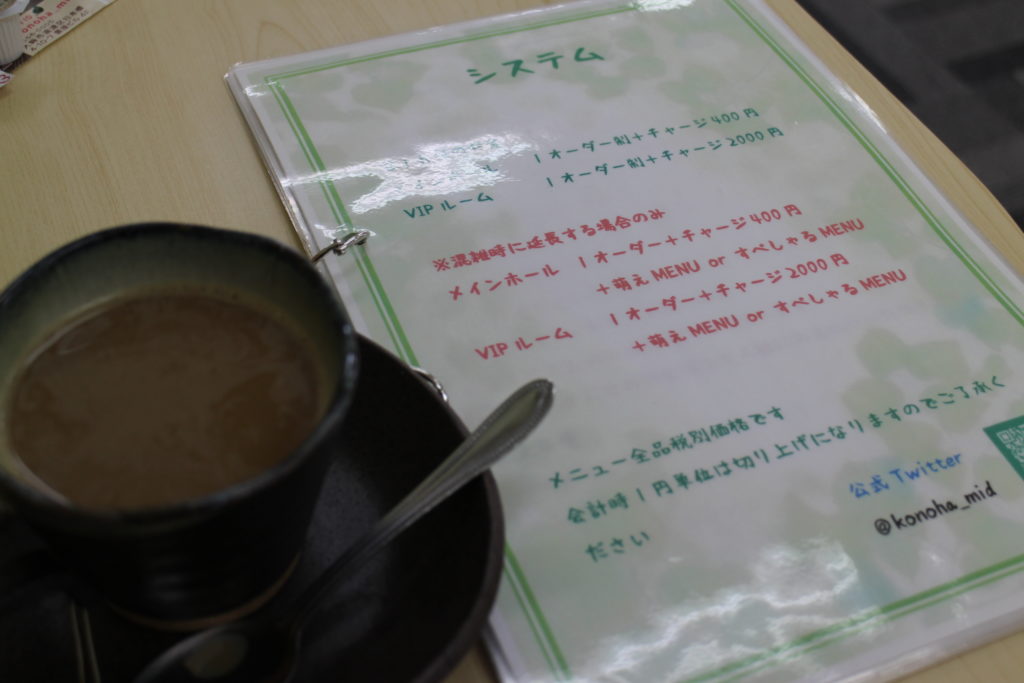 システム
1オーダー制+チャージ400円
VIPルーム 1オーダー制+チャージ2000円
※混雑時に延長する場合のみ
メインホール 1オーダー+チャージ400円
+萌えMENU or すぺしゃるMENU
VIPルーム 1オーダー+チャージ2000円
+萌えMENU or すぺしゃるMENU
メニュー全品税別価格です
会計時1円単位は切り上げになりますのでご了承く
ださい
公式Twitter
@konoha_mid